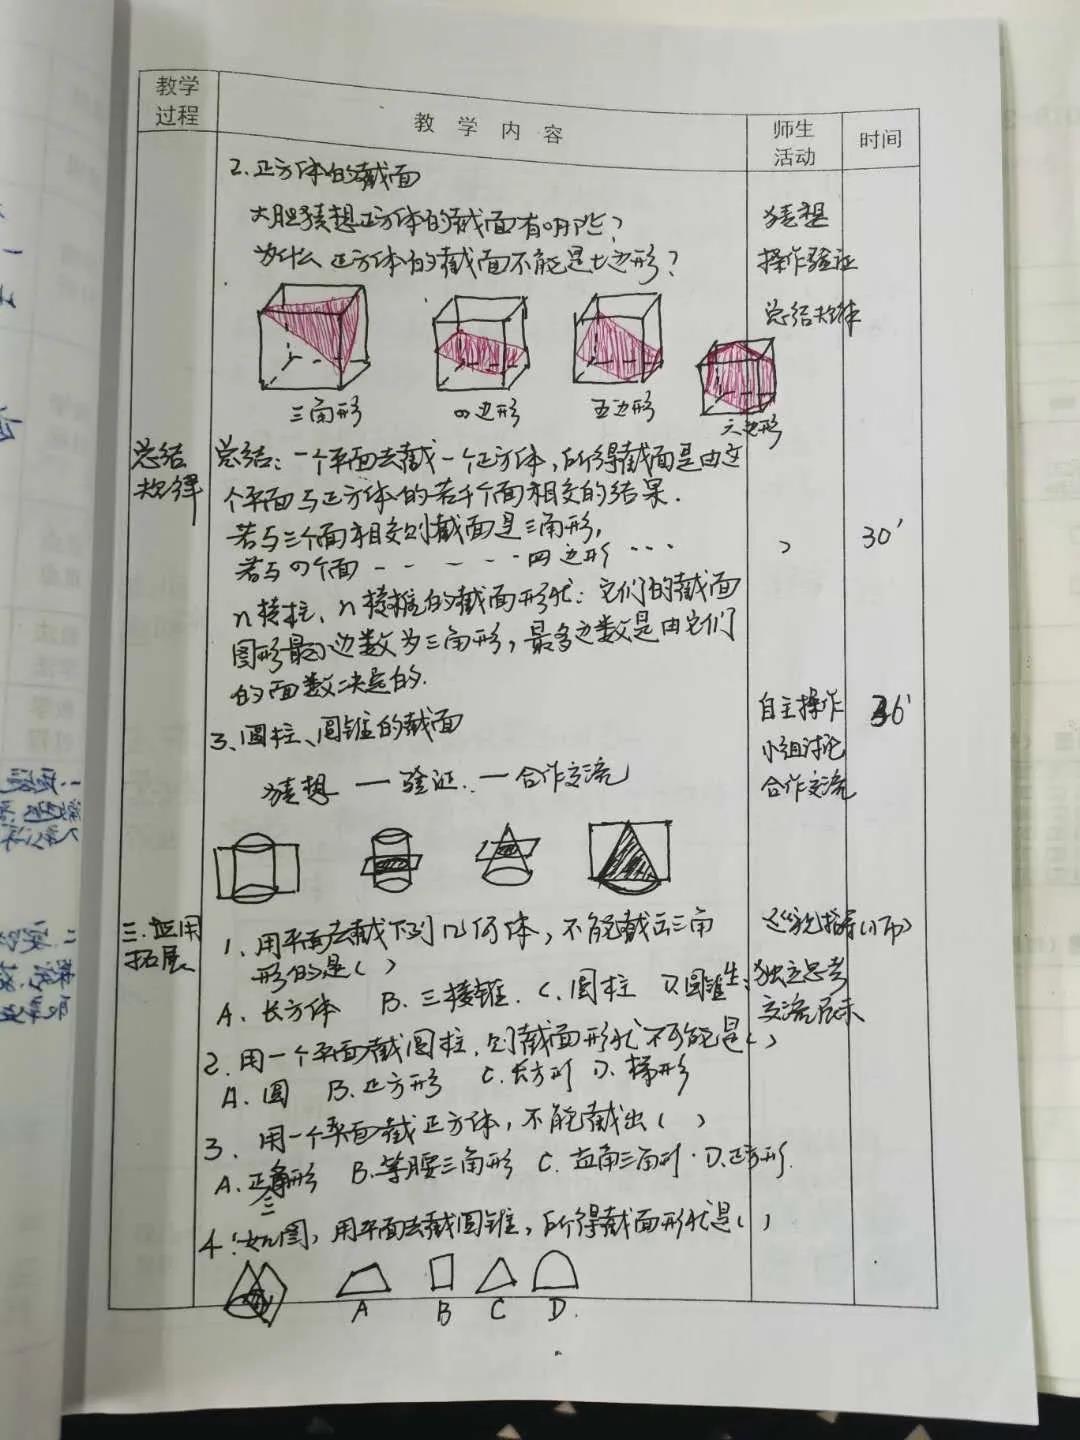 教学
过程
教 学 内 容
师生
活动
时间
2.正方体的截面
大胆猜想正方体的截面有哪些?
猜想
为什么正方体的截面不能是七边形?
操作验证
总结规律
三角形
四边形
五边形
六边形
总结
规律
总结:一个平面去截一个正方体,所得截面是由这
个平面与正方体的若干个面相交的结果.
若与三个面相交则截面是三角形,
若与四个面 - - - - - 四边形 ...
30′
n棱柱、n棱锥的截面形状:它们的截面
图形最 边数为三角形,最多边数是由它们
的面数决定的.
3、圆柱、圆锥的截面
自主操作
36′
小组讨论
猜想 — 验证. — 合作交流
合作交流
三.应用
拓展
1、用平面去截下列几何体,不能截出三角
形的是( )
巡视指导(师)
A、长方体 B.三棱锥. C.圆柱 D.圆锥
生:独立思考
交流展示
2、用一个平面截圆柱,则截面形状不可能是( )
A.圆 B.正方形 C.长方形 D.梯形
3、用一个平面截正方体,不能截出( )
A.正三角形 B.等腰三角形 C.直角三角形. D.正方形.
4.如图,用平面去截圆锥,所得截面形状是( )
A B C D.